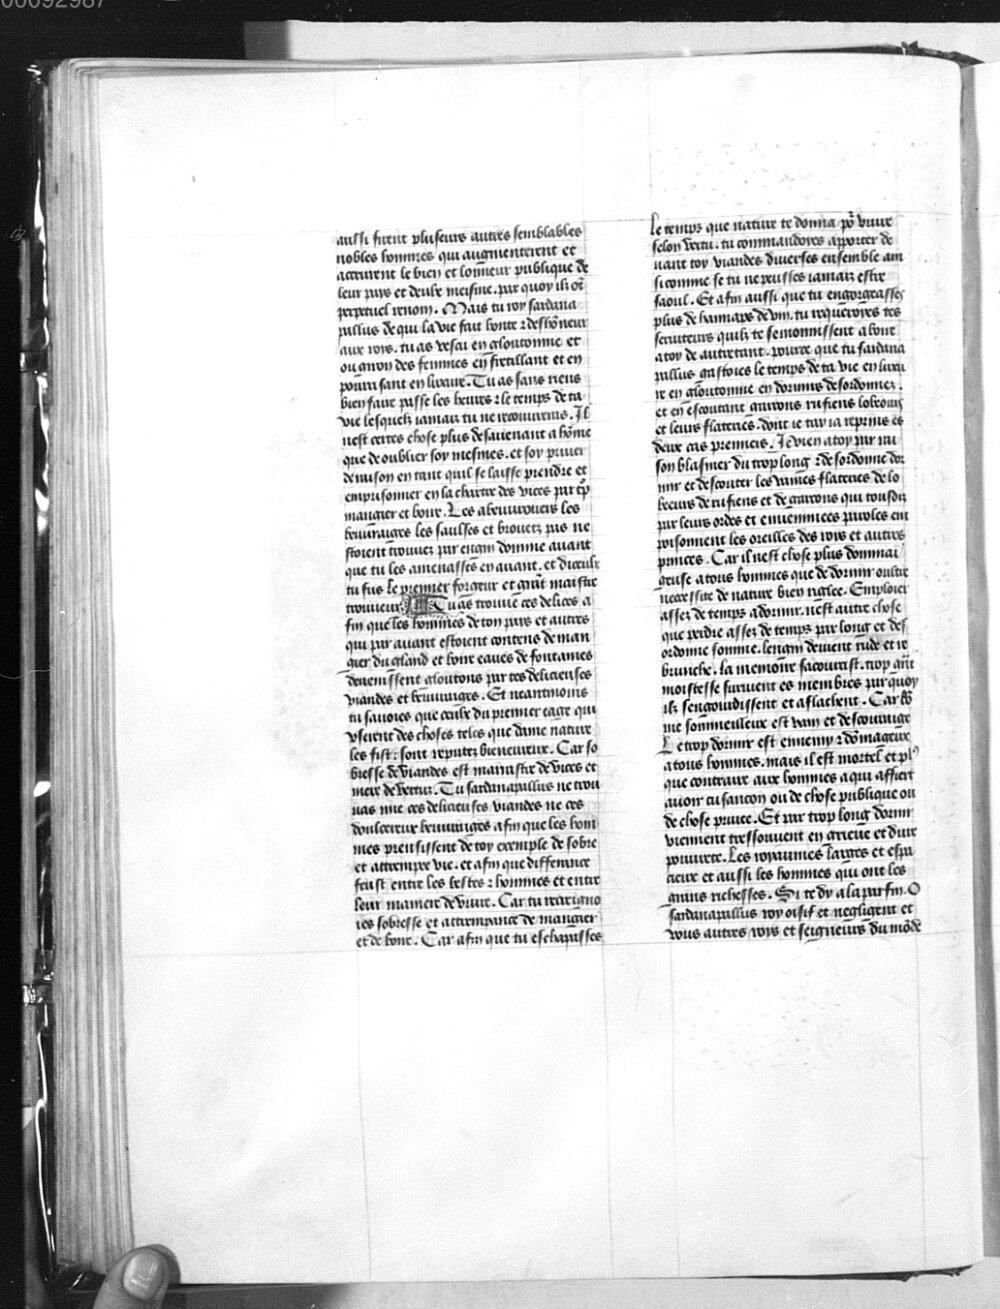 00092987
aussi furent pluseurs autres semblables
nobles hommes qui augmenterent et
accrurent le bien et lonneur publique de
leur pays et deulx meisme. par quoy ilz ōt
perpetuel renom. Mais tu roy sardana
pallus de qui la vie fait honte ⁊ deshōneur
aux roys. tu as vescu en gloutonnie et
ou giron des femmes en fretillant et en
pourrissant en luxure. Tu as sans riens
bien faire passe les heures ⁊ le temps de ta
vie lesquelz iamais tu ne recouvreras. Il
nest certes chose plus desavenant a hōme
que de oublier soy mesmes. et soy priver
de raison en tant quil se laisse prendre et
emprisonner en la chartre des vices par tp̄
mangier et boire. Les abeuvrouers les
beuvraiges les saulses et brouetz pas ne
feroient trouvez par engin domme avant
que tu les amenasses en avant. et diceulx
tu fus le premier forgeur et grāt maistre
trouveur. Tu as trouve ces delices a
fin que les hommes de ton pays et autres
qui par avant estoient contens de man
gier du gland et boire eaues de fontaines
devenissent gloutons par tes delicieuses
viandes et beuvraiges. Et neantmoins
tu savoies que ceulx du premier eage qui
usoient des choses teles que dame nature
les fist: sont reputez bieneureux. Car so
bresse de viandes est marrastre de vices et
mere de vertus. Tu sardanapallus ne trou
vas mie ces delicieuses viandes ne ces
doulcereux beuvraiges afin que les hom
mes prensissent de toy exemple de sobre
et attrempee vie. et afin que difference
feust entre les bestes ⁊ hommes et entre
leur maniere de vivre. Car tu
sobresse et attrempance de mangier
et de boire. Car afin que tu eschapasses
le temps que nature te donna po᷑ vivre
selon vertu. tu commandoies apporter de
vant toy viandes diverses ensemble ain
si comme se tu ne peusses iamaiz estre
saoul. Et afin aussi que tu engorgeasses
plus de hanaps de vin. tu requeroyes tes
serviteurs quilz te semonnissent a boire
a toy de autretant. pource que tu sardana
pallus gastoies le temps de ta vie en luxu
re en gloutonnie en dormirs desordonnez.
et en escoutant garcons rufiens lobeours
et leurs flateries. dont ie tay ia reprins es
deux cas premiers. Je vien a toy par rai
son blasmer du trop long ⁊ desordonne dor
mir et descouter les vaines flateries de lo
beeurs de rufiens et de garcons qui tousdiz
par leurs ordes et envenimees paroles em
poisonnent les oreilles des rois et autres
princes. Car il nest chose plus dommai
geuse a tous hommes que de dormir oultre
necessite de nature bien riglee. Emploier
assez de temps a dormir. nest autre chose
que perdre assez de temps par long et des
ordonne somme. lengin devient rude et re
brunche. la memoire sacourcist. trop grāt
moistesse survient es membres par quoy
ilz sengourdissent et aflachent. Car hō
me sommeilleux est vain et descouraige
Le trop dormir est ennemy ⁊ domageux
a tous hommes. mais il est mortel et plꝰ
que contraire aux hommes a qui affiert
avoir cusancon ou de chose publique ou
de chose privee. Et par trop long dormir
viennent tressouvent en grieve et dure
pouvrete. Les royaumes larges et espa
cieux et aussi les hommes qui ont les
grans richesses. Si te dy a la par fin. O
sardanapallus roy oisif et negligent et
vous autres roys et seigneurs du mōde